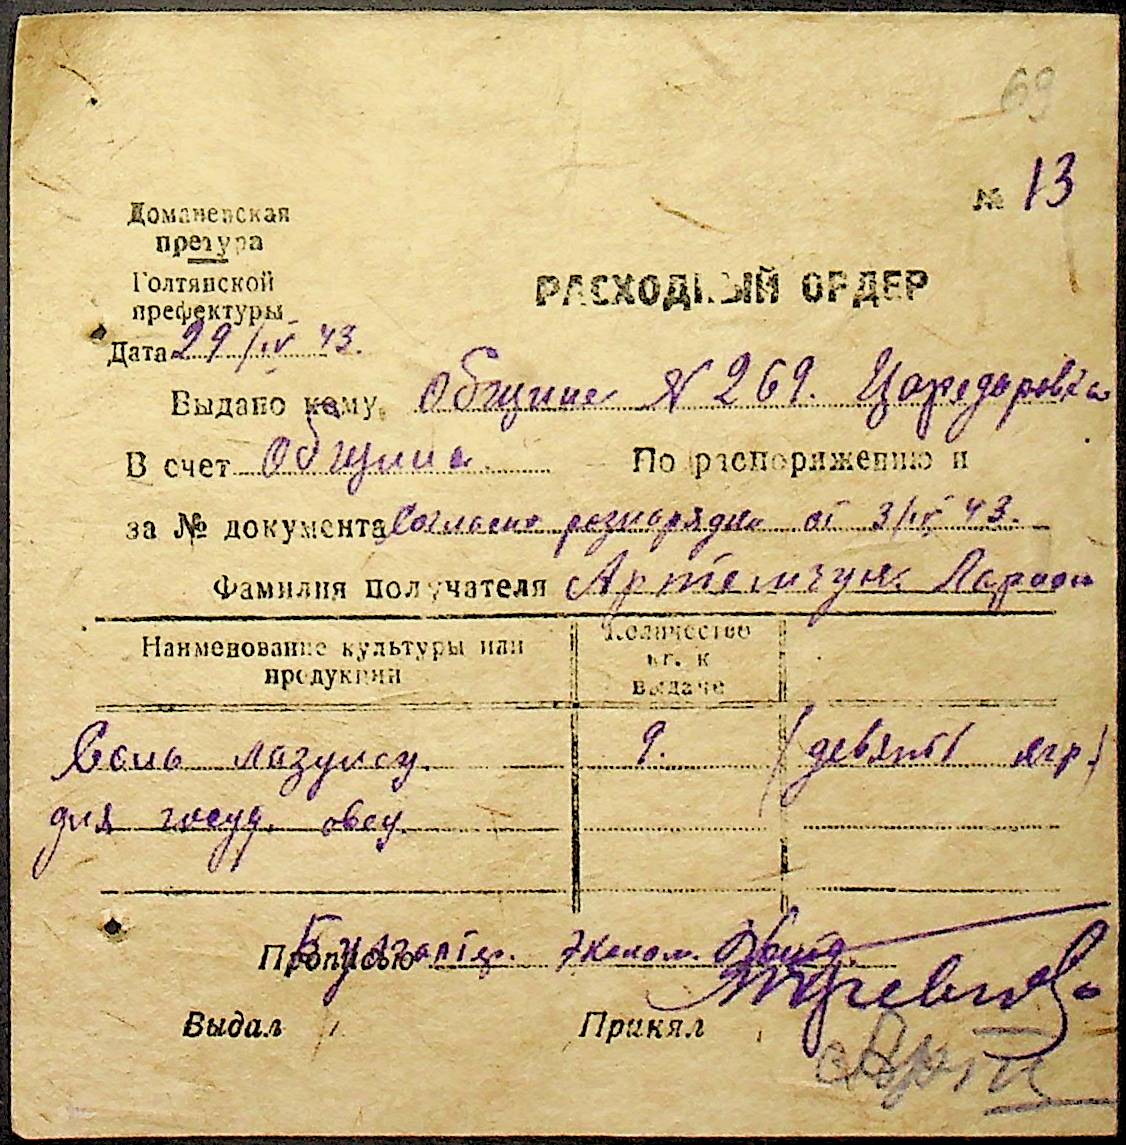 69
№ 13
Доманевская
претура
Голтянской
префектуры
РАСХОДНЫЙ ОРДЕР
Дата 29/IV 43.
Выдано кому Общине N 269.
В счет Община. По распоряжению и
за № документа Согласно разнарядки от 3/IV 43.
Фамилия получателя Артемчук
Наименование культуры или продукции
Количество кг. к выдаче
Соль 9. (девять кгр)
для госуд. овец.
Прописью Бухгалтер. Эконом.
Выдал Принял